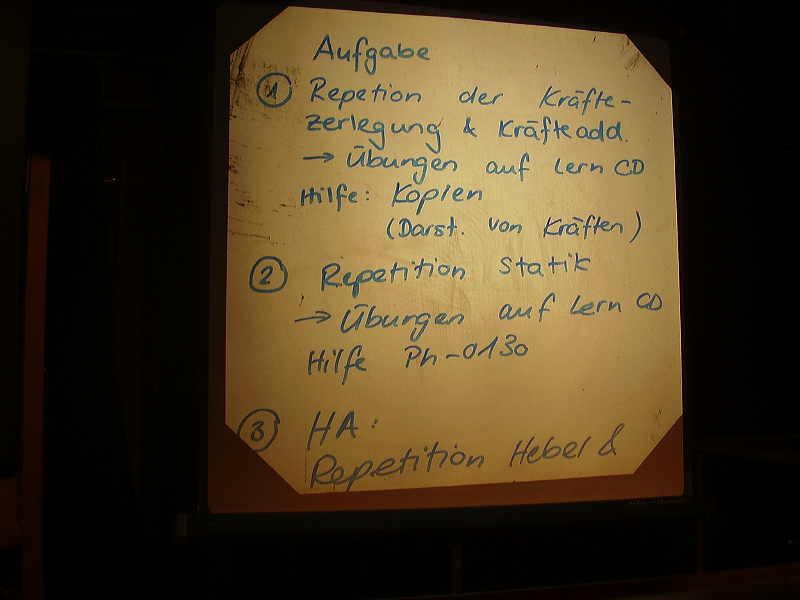 Aufgabe
1 Repetion der Kräfte-
zerlegung & Kräfteadd.
→ Übungen auf Lern CD
Hilfe: Kopien
(Darst. von Kräften)
2 Repetition Statik
→ Übungen auf Lern CD
Hilfe Ph-0130
3 HA:
Repetition Hebel &